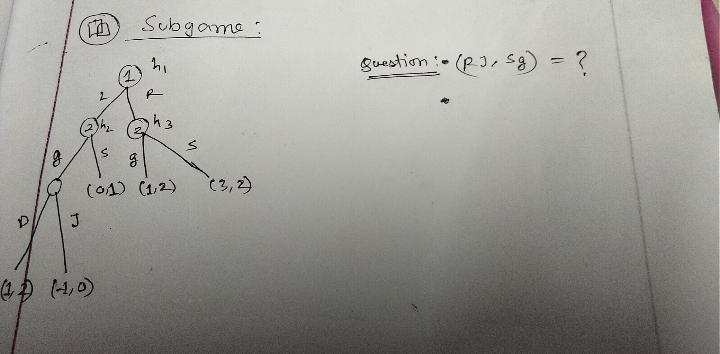 Subgame :
Question :- (RJ, Sg) = ?
1 h1
L R
2 h2 2 h3
g S g S
(0,1) (1,2) (3,2)
D J
(-1,0)